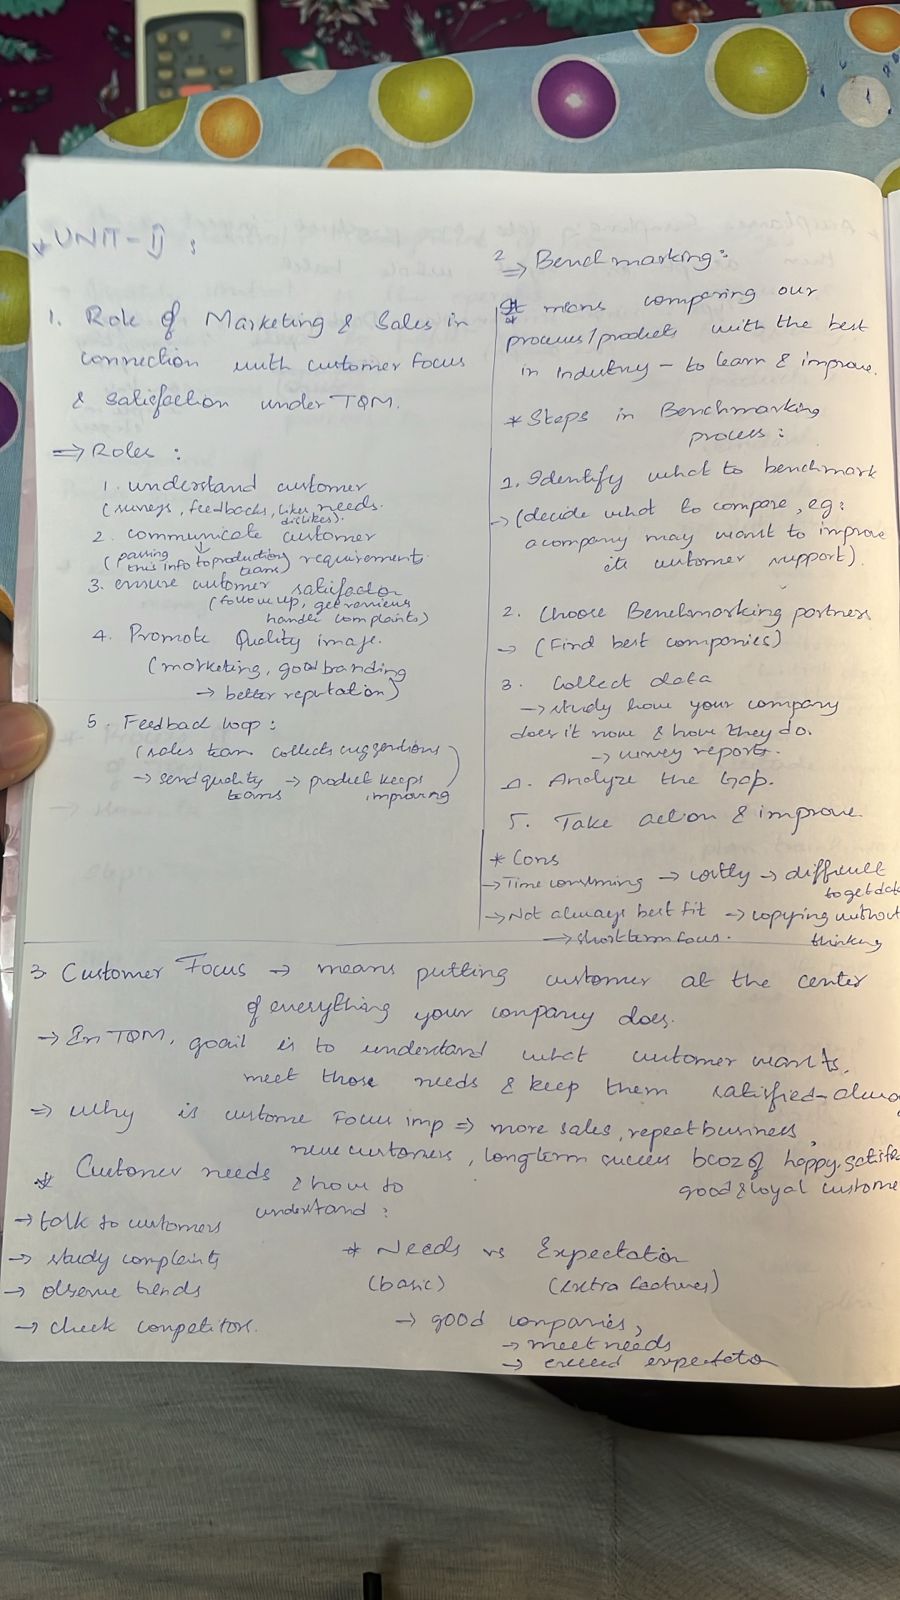 * UNIT - II :
1. Role of Marketing & Sales in
connection with customer focus
& satisfaction under TQM.
⇒ Roles :
1. understand customer
(surveys, feedbacks, likes, needs.
dislikes).
2. communicate customer
(passing ↓ requirements.
this info to production
teams)
3. ensure customer satisfaction
(follow up, get reviews
handle complaints)
4. Promote Quality image.
(marketing, good branding
→ better reputation)
5. Feedback loop :
(sales team collects suggestions
→ send quality → product keeps
teams improving)
2
⇒ Benchmarking :
* It means comparing our
process/products with the best
in Industry – to learn & improve.
* Steps in Benchmarking
process :
1. Identify what to benchmark
→ (decide what to compare, eg:
a company may want to improve
its customer support).
2. Choose Benchmarking partners
→ (Find best companies)
3. Collect data
→ study how your company
does it now & how they do.
→ survey reports.
4. Analyze the Gap.
5. Take action & improve.
* Cons
→ Time consuming → costly → difficult
to get data
→ Not always best fit → copying without
→ short term focus. thinking
3. Customer Focus → means putting customer at the center
of everything your company does.
→ In TQM, goal is to understand what customer wants,
meet those needs & keep them satisfied – always
⇒ Why is custome Focus imp ⇒ more sales, repeat business,
new customers, longterm success bcoz of happy, satisfied
good & loyal customers
* Customer needs & how to
understand :
→ talk to customers
→ study complaints
→ observe trends
→ check competitors.
* Needs vs Expectation
(basic) (extra features)
→ good companies,
→ meet needs
→ exceed expectation